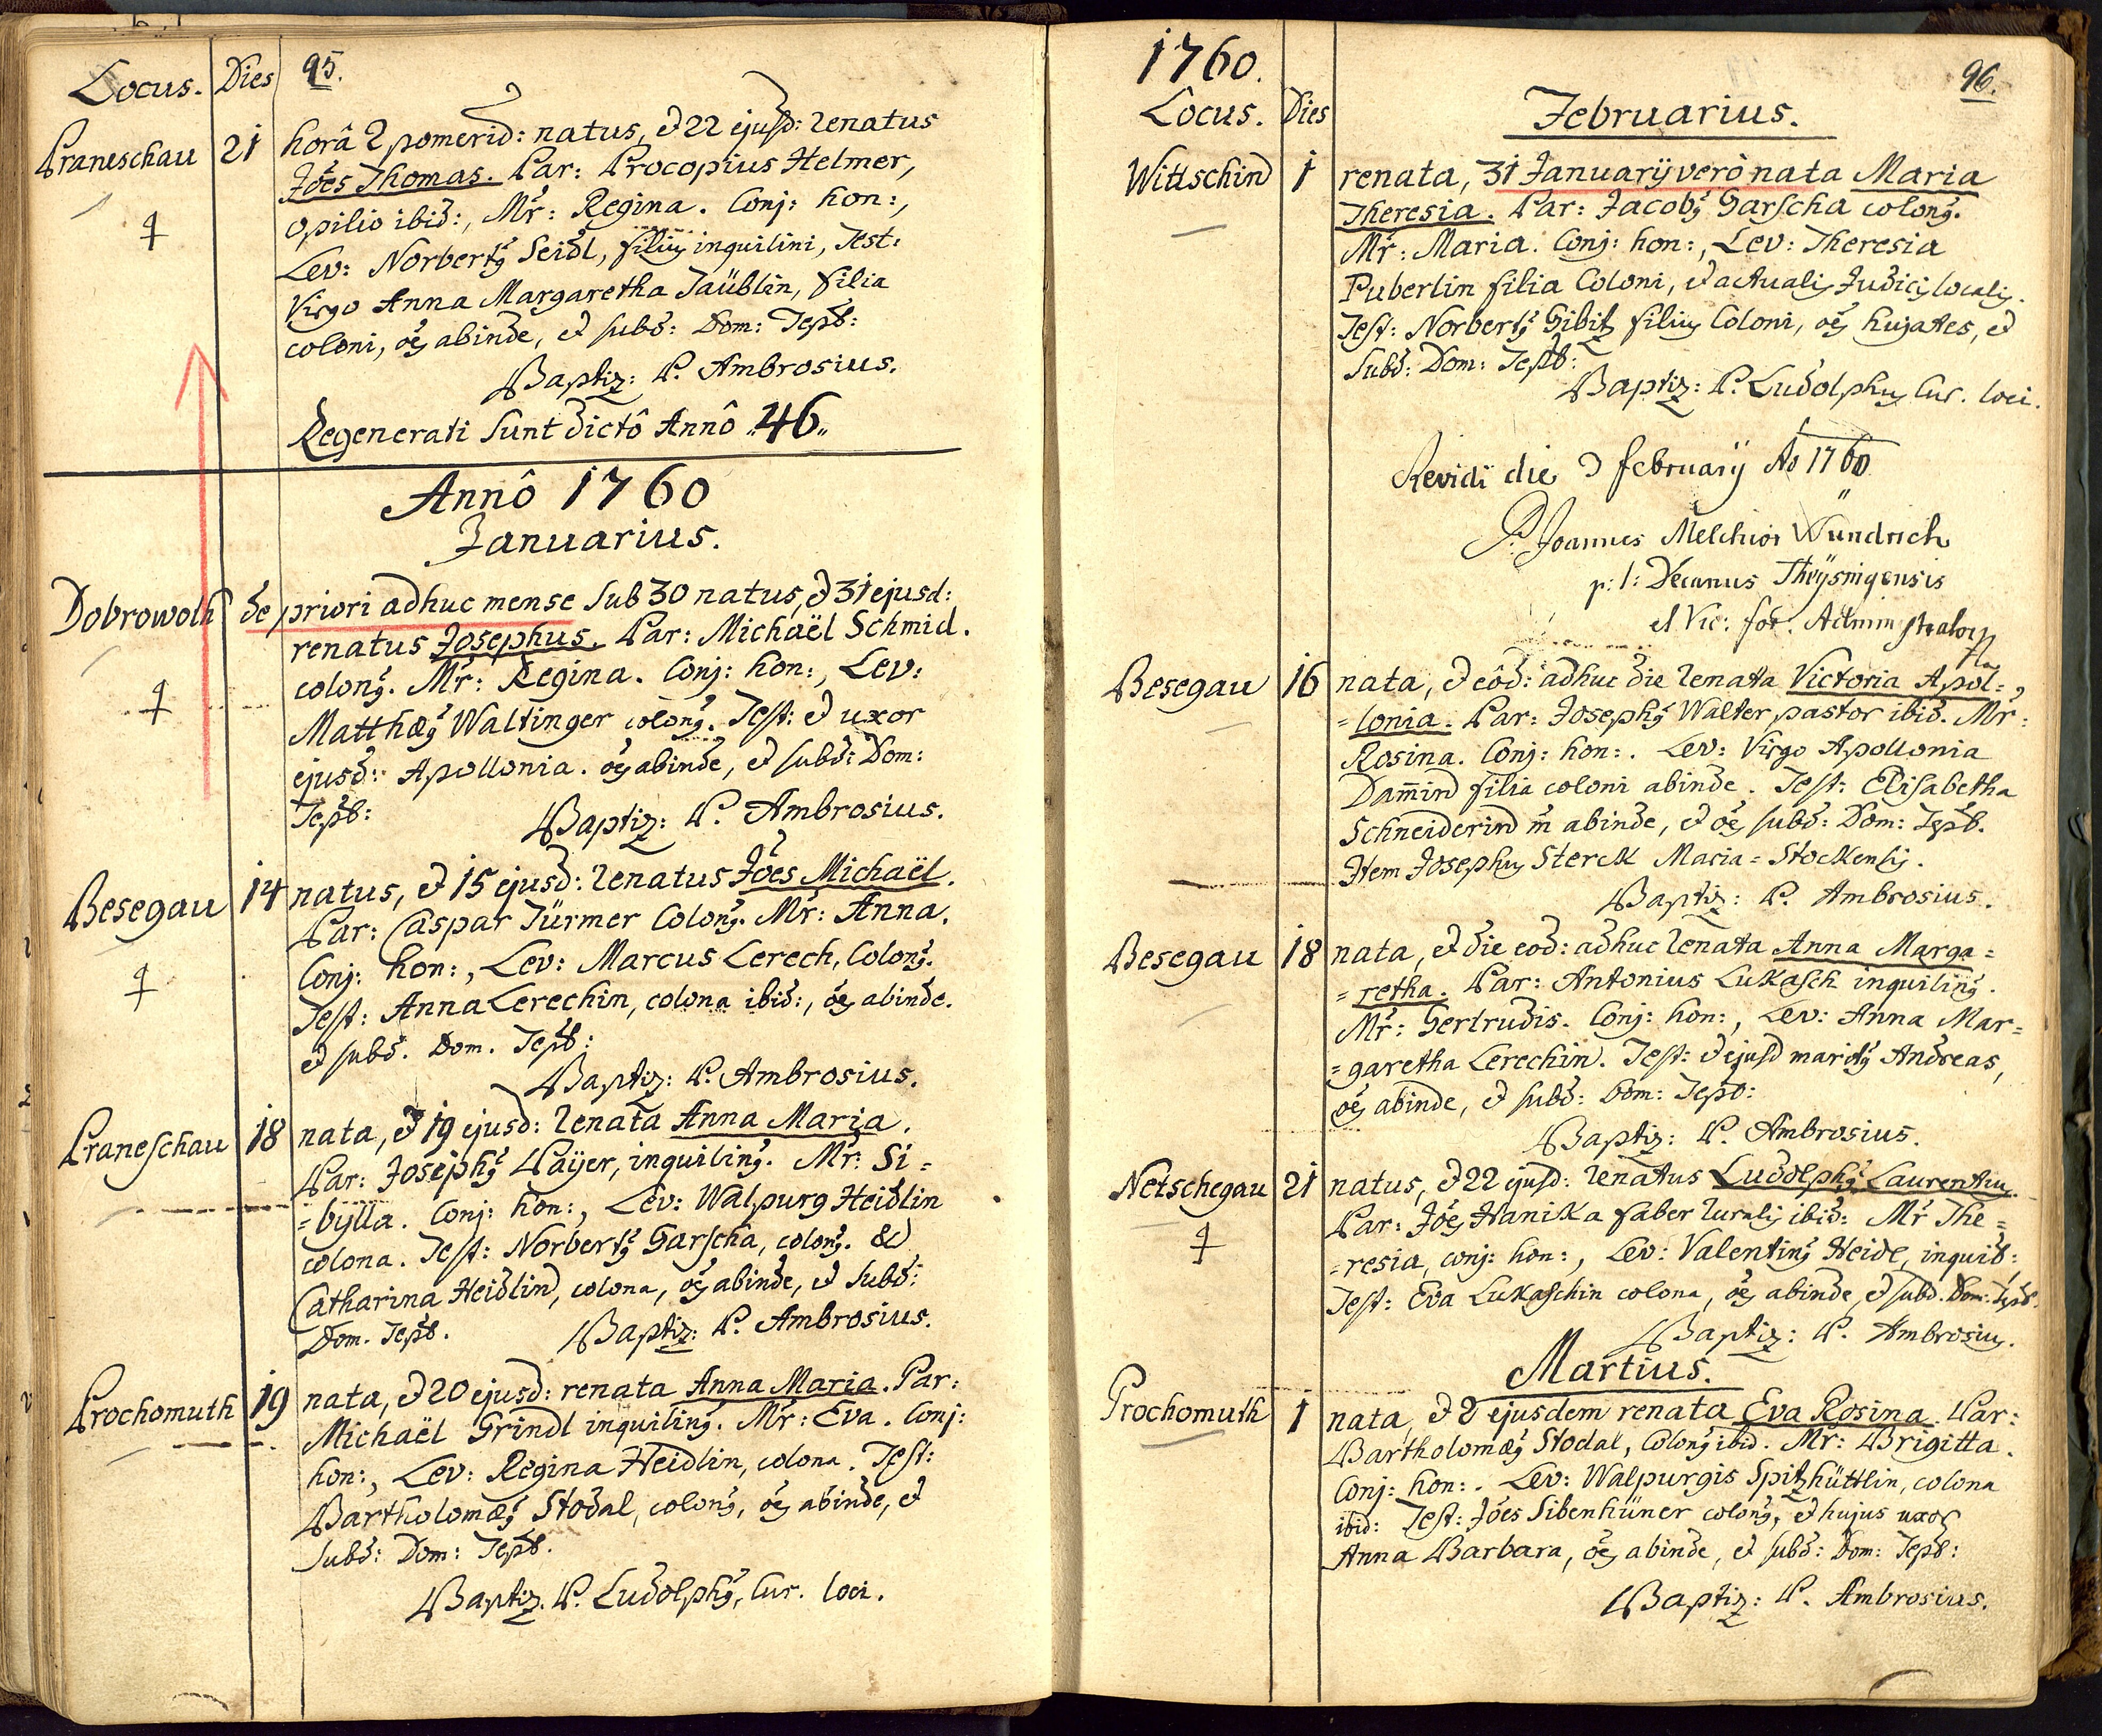 Locus. Dies 95.
Praneschau 21 horâ 2 pomerid: natus, et 22 ejusd: renatus
Jões Thomas. Par: Procopius Helmer,
opilio ibid:, Mr̃: Regina. Conj: hon:,
Lev: Norberty Seidl, filiy inquilini, Test:
Virgo Anna Margaretha Täüblin, filia
coloni, oẽs abinde, et subd: Dom: Tepl:
Baptiz: P. Ambrosius.
Regenerati sunt dictô Annô „46„
Annô 1760
Januarius.
Dobrowoth de priori adhuc mense sub 30 natus, et 31 ejusd:
renatus Josephus. Par: Michaël Schmid.
colony. Mr̃: Regina. Conj: hon:, Lev:
Matthæy Waltinger colony. Test: et uxor
ejusd: Apollonia. oẽs abinde, et subd: Dom:
Tepl: Baptiz: P. Ambrosius.
Besegau 14 natus, et 15 ejusd: renatus Jões Michaël.
Par: Caspar Türmer Colony. Mr̃: Anna.
Conj: hon:, Lev: Marcus Lerech, Colony.
Test: Anna Lerechin, colona ibid:, oẽs abinde.
et subd. Dom. Tepl:
Baptiz: P. Ambrosius.
Praneschau 18 nata, et 19 ejusd: renata Anna Maria.
Par: Josephy Paÿer, inquiliny. Mr̃: Si=
=bylla. Conj: hon:, Lev: Walpurg Heidlin
colona. Test: Norberty Garscha, colony. &
Catharina Heidlin, colona, oẽs abinde, et subd:
Dom. Tepl. Baptiz: P. Ambrosius.
Prochomuth 19 nata, et 20 ejusd: renata Anna Maria. Par:
Michaël Grindl inquiliny. Mr̃: Eva. Conj:
hon:, Lev: Regina Heidlin, colona. Test:
Bartholomæy Stodal, colony, oẽs abinde, et
subd: Dom: Tepl.
Baptiz. P. Ludolphy, Cur. loci.
1760. 96.
Locus. Dies Februarius.
Wittschin 1 renata, 31 Januarÿ verò nata Maria
Theresia. Par: Jacoby Garscha colony.
Mr̃: Maria. Conj: hon:, Lev: Theresia
Puberlin filia Coloni, et actualis Judicis localis.
Test: Norberty Gibitz filiy Coloni, oẽs hujates, et
subd: Dom: Tepl:
Baptiz: P. Ludolphy Cur. loci.
Revidi die 2 februarÿ Ao 1760
P. Joannes Melchior Wundrich
p: t: Decanus Theysnigensis
et Vic: for. Administrator
Besegau 16 nata, et eôd: adhuc die renata Victoria Apol=
=lonia. Par: Josephy Walter pastor ibid. Mr̃:
Rosina. Conj: hon:. Lev: Virgo Apollonia
Dam̃in filia coloni abinde. Test: Elisabetha
Schneiderin m̃ abinde, et oẽs subd: Dom: Tepl.
Item Josephy Sterck Maria=Stockensis.
Baptiz: P. Ambrosius.
Besegau 18 nata, et die eod: adhuc renata Anna Marga=
=retha. Par: Antonius Lukasch inquiliny.
Mr̃: Gertrudis. Conj: hon:, Lev: Anna Mar=
=garetha Lerechin. Test: et ejusd marity Andreas,
oẽs abinde, et subd: Dom: Tepl:
Baptiz: P. Ambrosius.
Netschegau 21 natus, et 22 ejusd: renatus Ludolphy Laurentiy.
Par: Jões Hanika faber ruralis ibid: Mr̃ The=
=resia, conj: hon:, Lev: Valentiny Heidl, inquil:,
Test: Eva Lukaschin colona, oẽs abinde, et subd. Dom: Tepl.
Baptiz: P. Ambrosiy.
Martius.
Prochomuth 1 nata, et 2 ejusdem renata Eva Rosina. Par:
Bartholomæy Stodal, Colony ibid. Mr̃: Brigitta.
Conj: hon:. Lev: Walpurgis Spitzhüttlin, colona
ibid: Test: Jões Sibenhüner colony, et hujus uxor
Anna Barbara, oẽs abinde, et subd: Dom: Tepl:
Baptiz: P. Ambrosius.